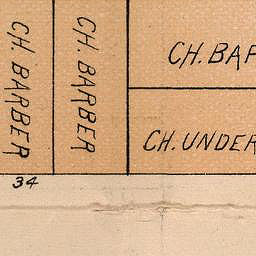 CH. BARBER
CH. BARBER
CH. BAR
CH. UNDER
34